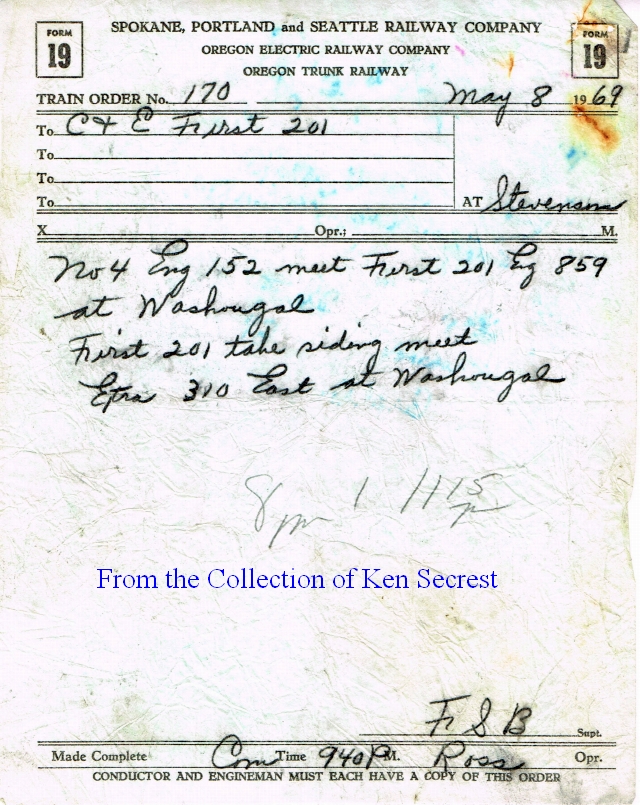 FORM 19
SPOKANE, PORTLAND and SEATTLE RAILWAY COMPANY
OREGON ELECTRIC RAILWAY COMPANY
OREGON TRUNK RAILWAY
FORM 19
TRAIN ORDER No. 170 May 8 1969
To C+E First 201
To
To
To AT Stevenson
X Opr.; M.
No 4 Eng 152 meet First 201 Eg 859
at Washougal
First 201 take siding meet
Extra 310 East at Washougal
8 pm 1 11 15 p
From the Collection of Ken Secrest
F S B Supt.
Made Complete Com Time 940 P M. Ross Opr.
CONDUCTOR AND ENGINEMAN MUST EACH HAVE A COPY OF THIS ORDER